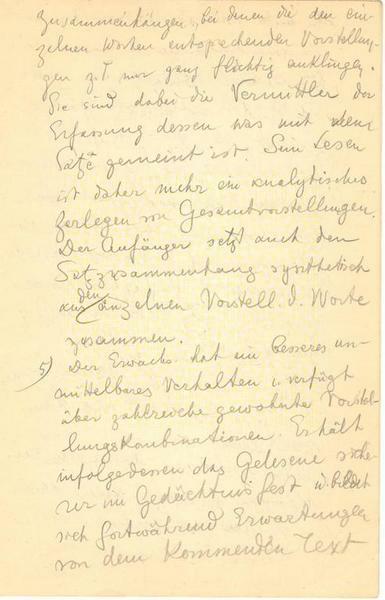 Zusammenhängen, bei denen die den ein-
zelnen Worten entsprechenden Vorstellun-
gen z.T. nur ganz flüchtig anklingen.
Sie sind dabei die Vermittler der
Erfassung dessen was mit dem
Satze gemeint ist. Sein Lesen
ist daher mehr ein analytisches
Zerlegen von Gesamtvorstellungen.
Der Anfänger setzt auch den
Satzzusammenhang synthetisch
aus den einzelnen Vorstell. d. Worte
zusammen.
5) Der Erwachs. hat ein besseres un-
mittelbares Verhalten u. verfügt
über zahlreiche gewohnte Vorstel-
lungskombinationen. Er hält
infolgedessen das Gelesene siche-
rer im Gedächtnis fest u. bildet
sich fortwährend Erwartungen
von dem kommenden Text